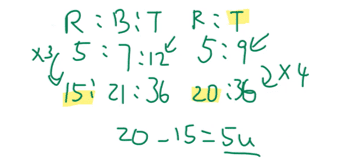 R : B : T R : T
x3 5 : 7 : 12 5 : 9
15 : 21 : 36 20 : 36 x4
20 - 15 = 5u